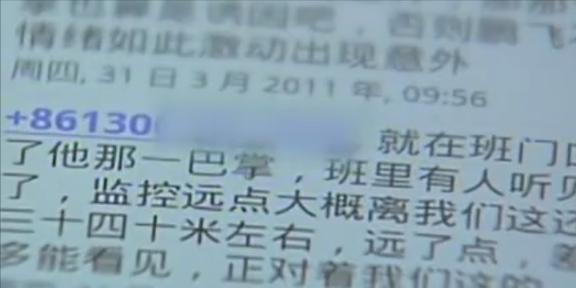 掌也算是诱因吧，否则鹏飞
情绪如此激动出现意外
周四, 31 日 3 月 2011 年, 09:56
+86130
就在班门口
了他那一巴掌，班里有人听见
了，监控远点大概离我们这还
三十四十米左右，远了点，差
多能看见，正对着我们这的